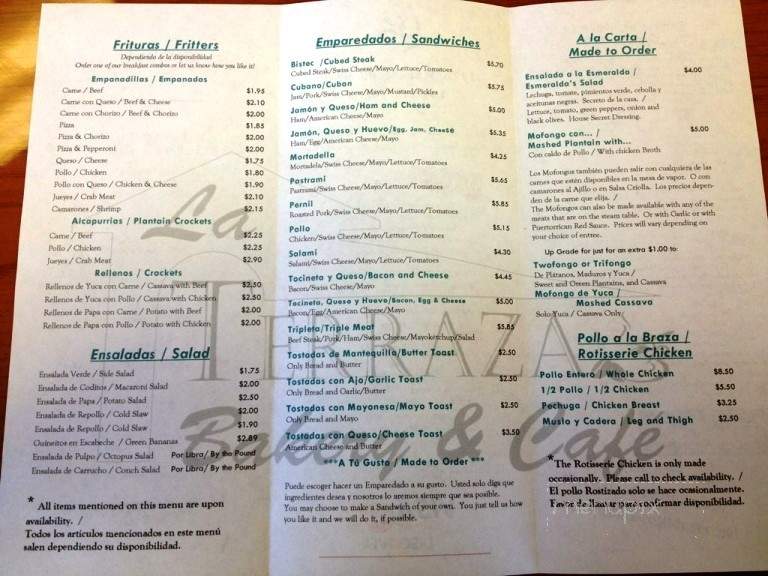 Frituras / Fritters
Dependiendo de la disponibilidad
Order one of our breakfast combos or let us know how you like it!
Empanadillas / Empanadas
Carne / Beef $1.95
Carne con Queso / Beef & Cheese $2.10
Carne con Chorizo / Beef & Chorizo $2.00
Pizza $1.85
Pizza & Chorizo $2.00
Pizza & Pepperoni $2.00
Queso / Cheese $1.75
Pollo / Chicken $1.80
Pollo con Queso / Chicken & Cheese $1.90
Jueyes / Crab Meat $2.10
Camarones / Shrimp $2.15
Alcapurrias / Plantain Crockets
Carne / Beef $2.25
Pollo / Chicken $2.25
Jueyes / Crab Meat $2.90
Rellenos / Crockets
Rellenos de Yuca con Carne / Cassava with Beef $2.50
Rellenos de Yuca con Pollo / Cassava with Chicken $2.50
Rellenos de Papa con Carne / Potato with Beef $2.00
Rellenos de Papa con Pollo / Potato with Chicken $2.00
Ensaladas / Salad
Ensalada Verde / Side Salad $1.75
Ensalada de Coditos / Macaroni Salad $2.00
Ensalada de Papa / Potato Salad $2.50
Ensalada de Repollo / Cold Slaw $2.00
Ensalada de Repollo / Cold Slaw $1.90
Guineitos en Escabeche / Green Bananas $2.89
Ensalada de Pulpo / Octopus Salad Por Libra/ By the Pound
Ensalada de Carrucho / Conch Salad Por Libra/ By the Pound
* All items mentioned on this menu are upon
availability. /
Todos los artículos mencionados en este menú
salen dependiendo su disponibilidad.
Emparedados / Sandwiches
Bistec /Cubed Steak $5.70
Cubed Steak/Swiss Cheese/Mayo/Lettuce/Tomatoes
Cubano/Cuban $5.75
Jam/Pork/Swiss Cheese/Mayo/Mustard/Pickles
Jamón y Queso/Ham and Cheese $5.00
Ham/American Cheese/Mayo
Jamón, Queso y Huevo/Egg, Jam, Cheese $5.35
Ham/Egg/American Cheese/Mayo
Mortadella $4.25
Mortadela/Swiss Cheese/Mayo/Lettuce/Tomatoes
Pastrami $5.65
Pastrami/Swiss Cheese/Mayo/Lettuce/Tomatoes
Pernil $5.85
Roasted Pork/Swiss Cheese/Mayo/Lettuce/Tomatoes
Pollo $5.15
Chicken/Swiss Cheese/Mayo/Lettuce/Tomatoes
Salami $4.30
Salami/Swiss Cheese/Mayo/Lettuce/Tomatoes
Tocineta y Queso/Bacon and Cheese $4.45
Bacon/Swiss Cheese/Mayo
Tocineta, Queso y Huevo/Bacon, Egg & Cheese $5.00
Bacon/Egg/American Cheese/Mayo
Tripleta/Triple Meat $5.85
Beef Steak/Pork/Ham/Swiss Cheese/Mayoketchup/Salad
Tostadas de Mantequilla/Butter Toast $2.50
Only Bread and Butter
Tostadas con Ajo/Garlic Toast $2.50
Only Bread and Garlic/Butter
Tostadas con Mayonesa/Mayo Toast $2.50
Only Bread and Mayo
Tostadas con Queso/Cheese Toast $3.50
American Cheese and Butter
***A Tú Gusto / Made to Order ***
Puede escoger hacer un Emparedado a su gusto. Usted solo diga que
ingredientes desea y nosotros lo aremos siempre que sea posible.
You may choose to make a Sandwich of your own. You just tell us how
you like it and we will do it, if possible.
A la Carta /
Made to Order
Ensalada a la Esmeralda / $4.00
Esmeralda's Salad
Lechuga, tomate, pimientos verde, cebolla y
aceitunas negras. Secreto de la casa. /
Lettuce, tomato, green peppers, onion and
black olives. House Secret Dressing.
Mofongo con... / $5.00
Mashed Plantain with...
Con caldo de Pollo / With chicken Broth
Los Mofongos también puden salir con cualquiera de las
carnes que estén disponibles en la mesa de vapor. O con
camarones al Ajillo o en Salsa Criolla. Los precios depen-
den de la carne que elija. /
The Mofongos can also be made available with any of the
meats that are on the steam table. Or with Garlic or with
Puertorrican Red Sauce. Prices will vary depending on
your choice of entree.
Up Grade for just for an extra $1.00 to:
Twofongo or Trifongo
De Plátanos, Maduros y Yuca /
Sweet and Green Plantains, and Cassava
Mofongo de Yuca /
Mashed Cassava
Solo Yuca / Cassava Only
Pollo a la Braza /
Rotisserie Chicken
Pollo Entero / Whole Chicken $8.50
1/2 Pollo / 1/2 Chicken $5.50
Pechuga / Chicken Breast $3.25
Muslo y Cadera / Leg and Thigh $2.50
*The Rotisserie Chicken is only made
occasionally. Please call to check availability. /
El pollo Rostizado solo se hace ocasionalmente.
Favor de llamar para confirmar disponibilidad.
La
TERRAZA
Bakery & Café
menupix